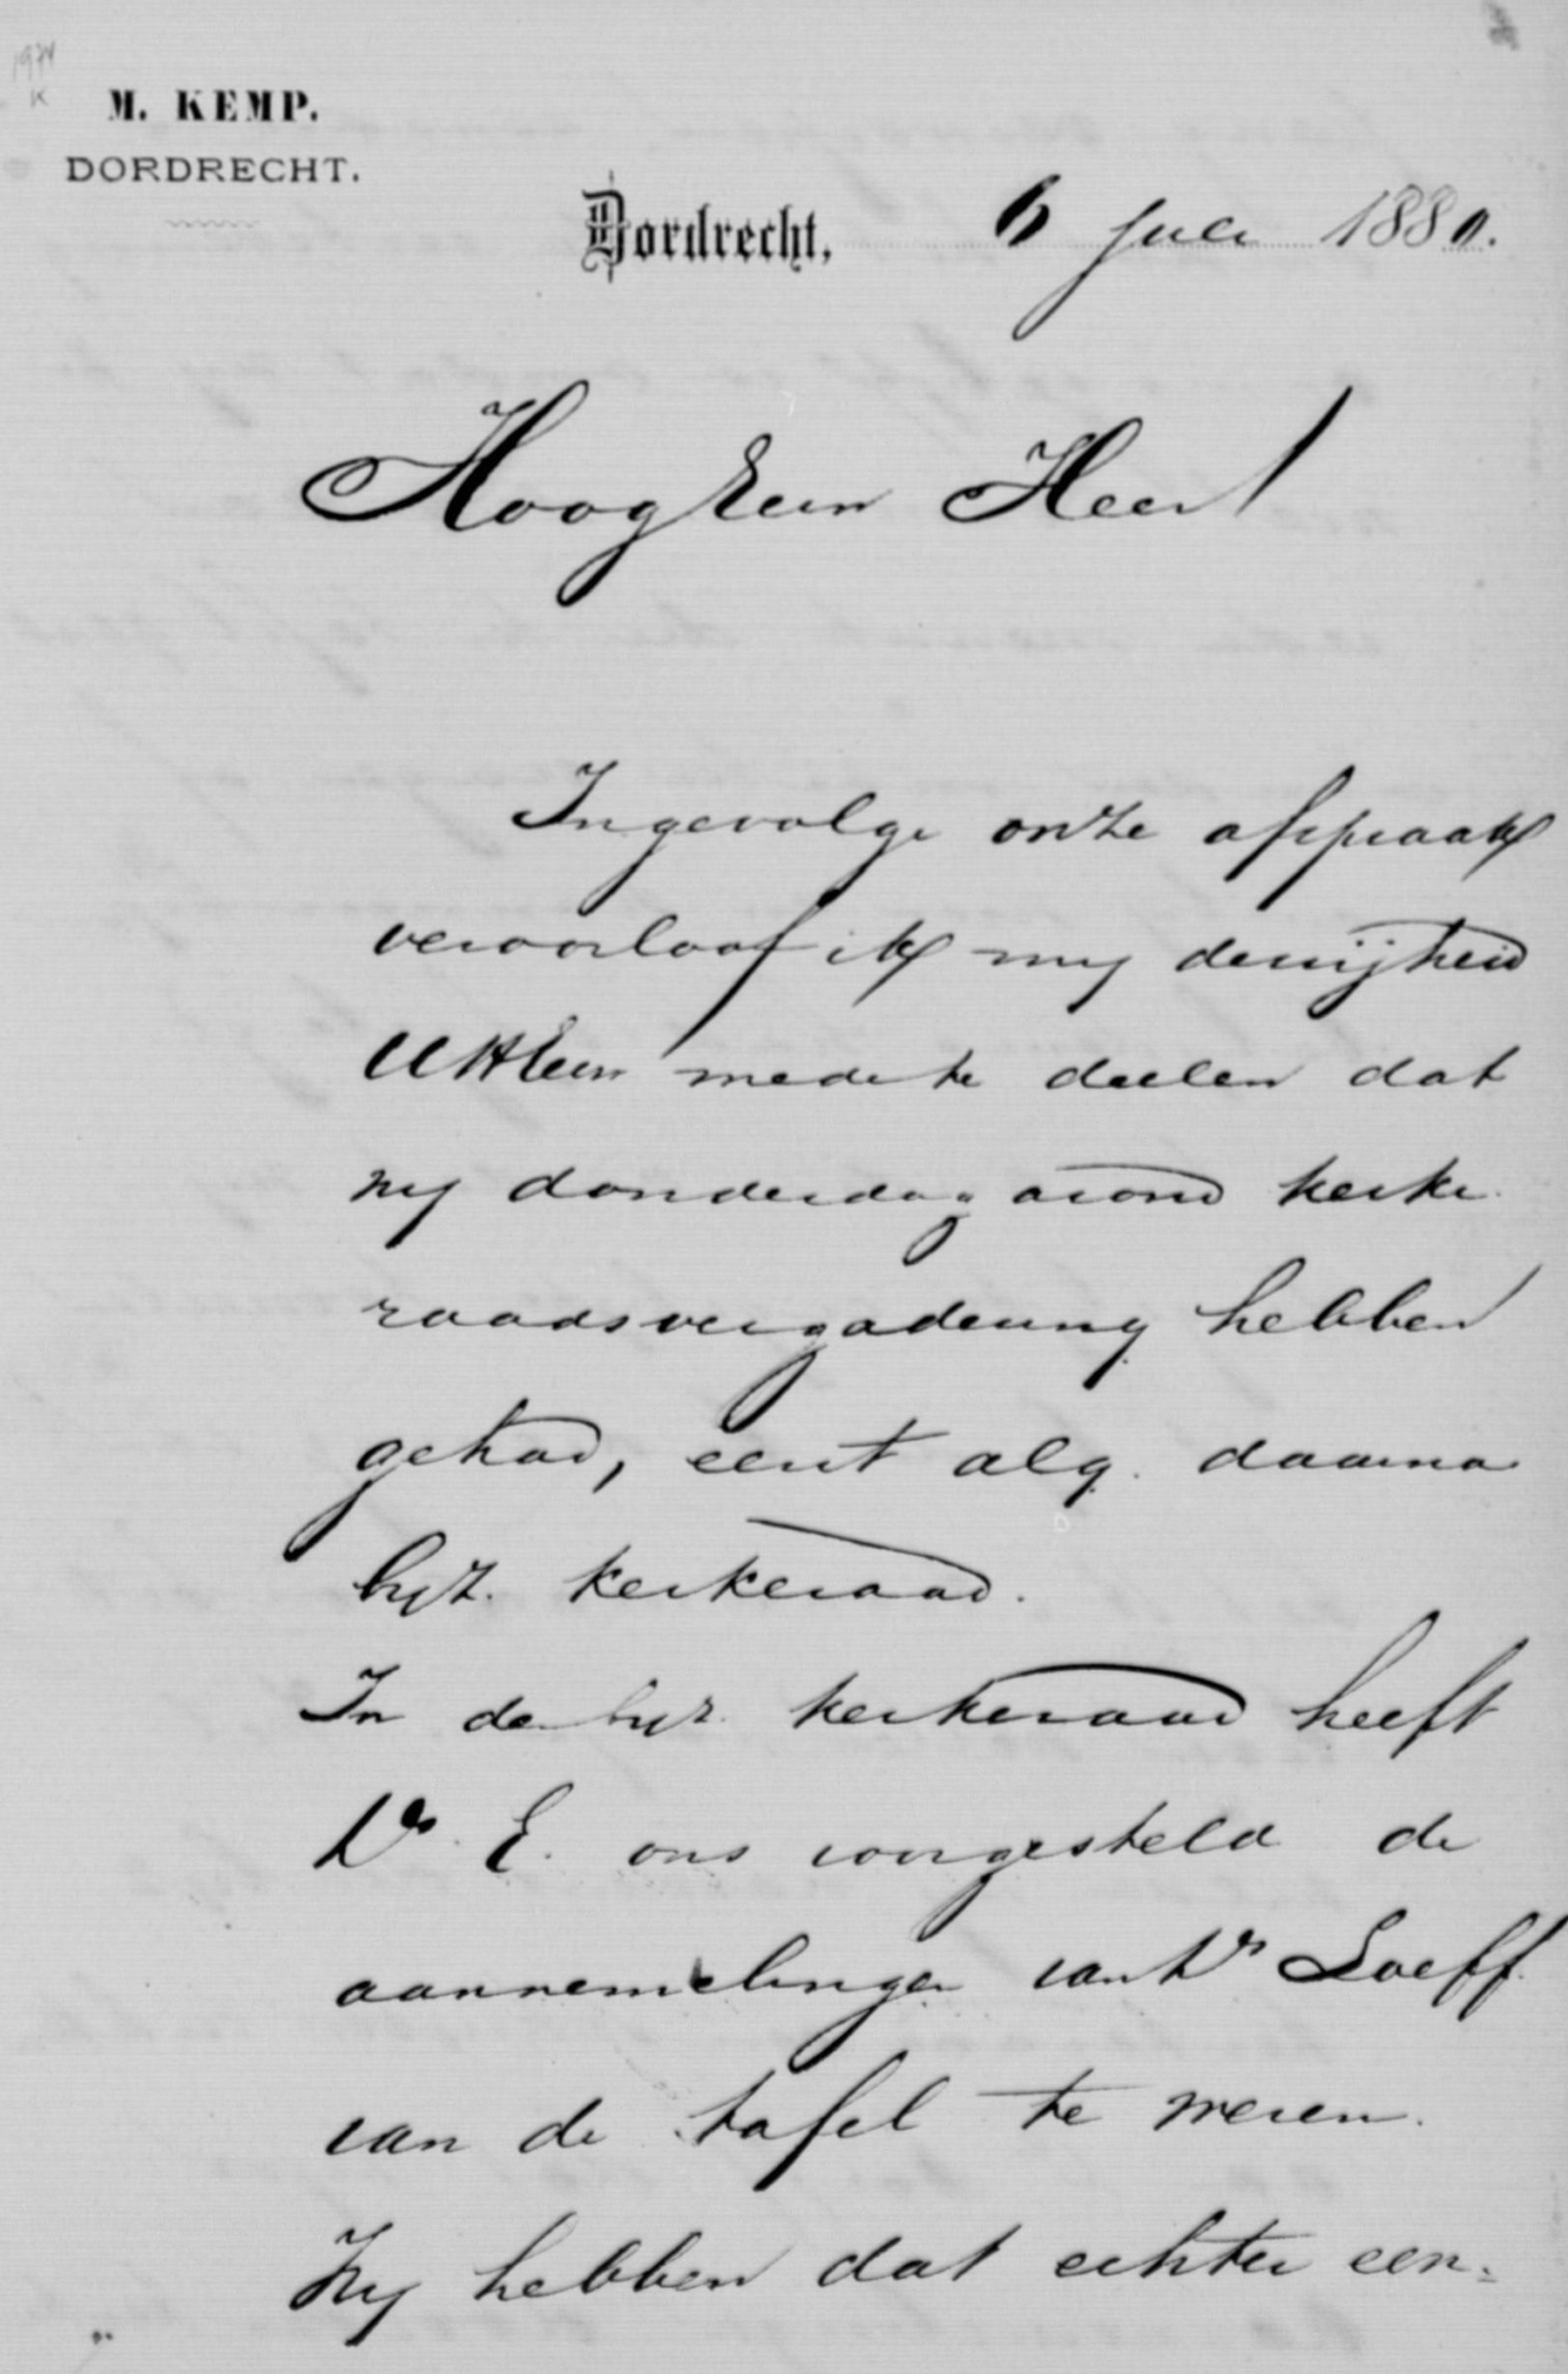 1974
K
M. KEMP.
DORDRECHT.
Dordrecht, 6 Juli 1880.
HoogEerw Heer!
Ingevolge onze afspraak
veroorloof ik my de vrijheid
UHEerw mede te deelen dat
wy donderdag avond kerke
raadsvergadering hebben
gehad, eerst alg. daarna
byz. kerkeraad.
In de byz. kerkeraad heeft
Ds. E. ons voorgesteld de
aannemelingen van Ds Loeff
van de tafel te weren.
Wy hebben dat echter een-